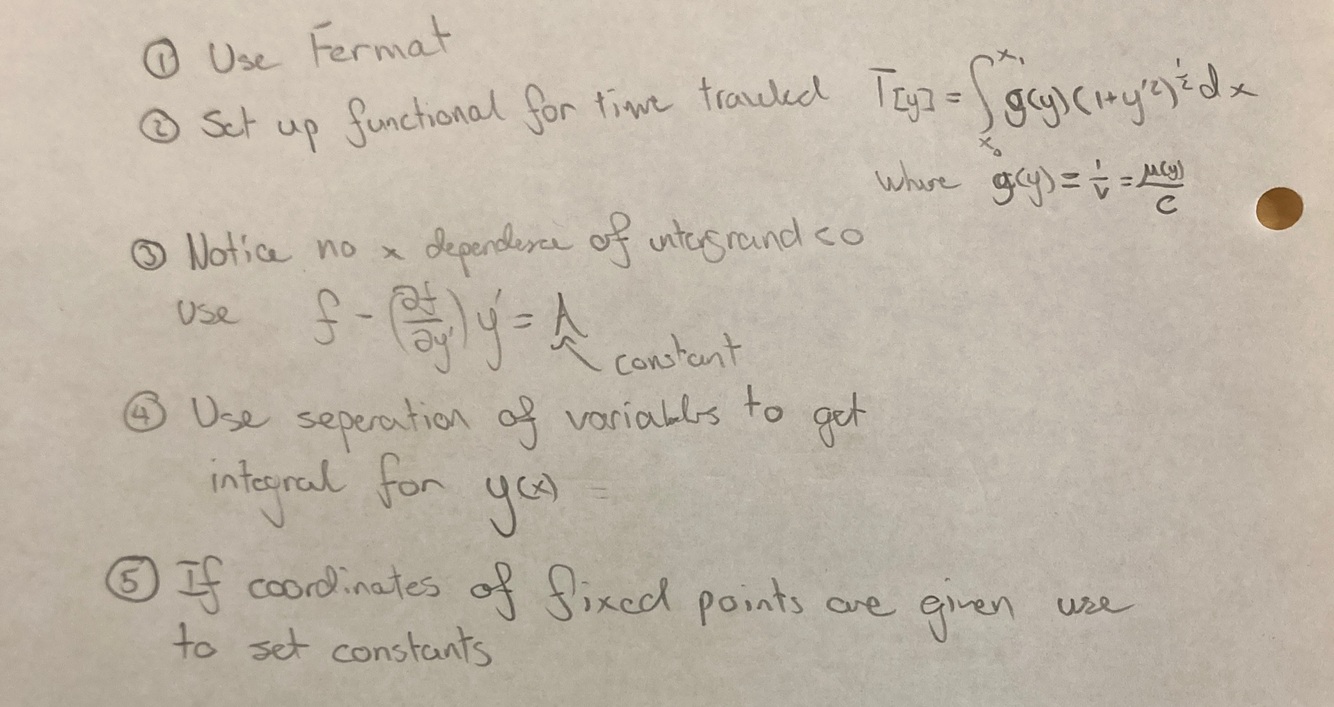 ① Use Fermat
② Set up functional for time travelled T[y] = ∫_{x₀}^{x₁} g(y)(1+y'²)^{½} dx
where g(y) = 1/v = μ(y)/c
③ Notice no x dependence of intergrand so
use f - (∂f/∂y') y' = A
constant
④ Use seperation of variables to get
integral for y(x) =
⑤ If coordinates of fixed points are given use
to set constants